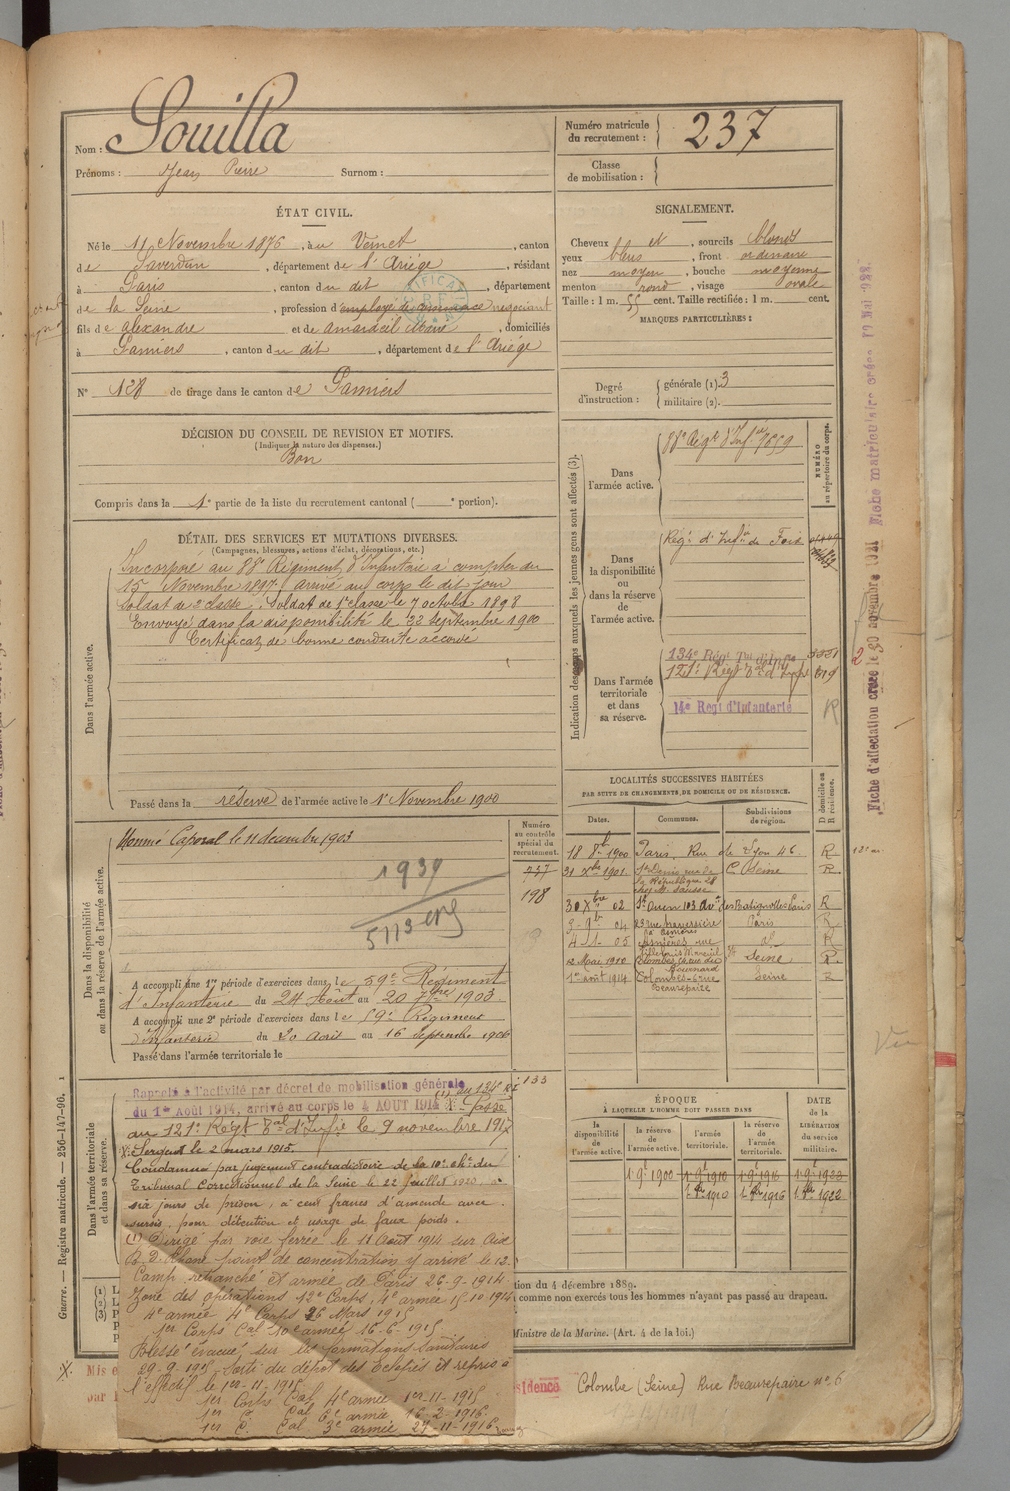 Nom : Souilla
Prénoms : Jean Pierre Surnom :
Numéro matricule du recrutement : 237
Classe de mobilisation :
ÉTAT CIVIL.
Né le 11 Novembre 1876, au Vernet, canton
de Saverdun, département de l'Ariége, résidant
à Paris, canton du dit, département
de la Seine, profession d'employé de commerce negociant
fils de Alexandre et de Amardeil Marie, domiciliés
à Pamiers, canton du dit, département de l'Ariége
N° 128 de tirage dans le canton de Pamiers
DÉCISION DU CONSEIL DE REVISION ET MOTIFS.
(Indiquer la nature des dispenses.)
Bon
Compris dans la 1e partie de la liste du recrutement cantonal ( e portion).
DÉTAIL DES SERVICES ET MUTATIONS DIVERSES.
(Campagnes, blessures, actions d'éclat, décorations, etc.)
Dans l'armée active.
Incorporé au 88e Régiment d'Infanterie à compter du
15 Novembre 1897. Arrivé au corps le dit jour
Soldat de 2e classe. Soldat de 1e classe le 7 octobre 1898
Envoyé dans la disponibilité le 22 Septembre 1900
Certificat de bonne conduite accordé
Passé dans la réserve de l'armée active le 1e Novembre 1900
Dans la disponibilité
ou dans la réserve de l'armée active.
Nommé Caporal le 11 decembre 1903
1939
Numéro
au contrôle
spécial du
recrutement.
737
198
A accompli une 1re période d'exercices dans le 59e Régiment
d'Infanterie du 24 Août au 20 7bre 1903
A accompli une 2e période d'exercices dans le 59e Régiment
d'Infanterie du 20 Août au 16 Septembre 1906
Passé dans l'armée territoriale le
Dans l'armée territoriale
et dans sa réserve.
133
Rappelé à l'activité par décret de mobilisation générale
du 1er Août 1914, arrivé au corps le 4 AOUT 1914 Passé
(1) au 134e RI
au 121e Régt Tal d'Infie le 9 novembre 1917
Sergent le 2 mars 1915.
Condamné par jugement contradictoire de la 10e che du
Tribunal Correctionnel de la Seine le 22 juillet 1920, à
six jours de prison, à cent francs d'amende avec
sursis, pour détention et usage de faux poids.
(1) Dirigé par voie ferrée le 11 Août 1914 sur Aix
B. D. Rhone point de concentration y arrivé le 12.
Camp retranché et armée de Paris 26-9-1914
Zone des opérations 12e Corps, 4e armée 15 10 1914
4e armée 4e Corps 26 Mars 1915
1er Corps Cal 10e armée 16-6-1915
Blessé évacué sur les formations sanitaires
29-9-1915 Sorti du dépôt des Eclopés et repris à
l'effectif le 1er-11-1915
1er Corps Cal, 4e armée 1er-11-1915
1er C. Cal 6e armée 16-2-1916
1er C. Cal 3e armée 27-11-1916
SIGNALEMENT.
Cheveux et, sourcils blonds
yeux bleus, front ordinaire
nez moyen, bouche moyenne
menton rond, visage ovale
Taille : 1 m. 55 cent. Taille rectifiée : 1 m. cent.
MARQUES PARTICULIÈRES :
Degré d'instruction : générale (1). 3
militaire (2).
Indication des corps auxquels les jeunes gens sont affectés (3).
NUMÉRO
au répertoire du corps.
Dans
l'armée active.
88e Régt d'Infie 7859
Dans
la disponibilité
ou
dans la réserve
de
l'armée active.
Régt d'Infie de Foix
Dans l'armée
territoriale
et dans
sa réserve.
134e Régt Tal d'Infie
121e Régt Tal d'Infie 819
14e Régt d'Infanterie
R
LOCALITÉS SUCCESSIVES HABITÉES
PAR SUITE DE CHANGEMENTS DE DOMICILE OU DE RÉSIDENCE.
Dates. Communes. Subdivisions de région. D domicile ou R résidence.
18 8bre 1900 Paris, Rue de Lyon 46 R
31 Xbre 1901 St Denis rue de la République 28 Seine R
30 Xbre 02 St Ouen 103 Av. des Batignolles Paris R
04 23 rue traversière Paris R
4-1-05 Asnières rue R
12 Mai 1910 Colombes Seine R.
1er août 1914 Colombes 6 rue Beaurepaire Seine R
ÉPOQUE
À LAQUELLE L'HOMME DOIT PASSER DANS
la disponibilité de l'armée active. la réserve de l'armée active. l'armée territoriale. la réserve de l'armée territoriale.
DATE de la LIBÉRATION du service militaire.
1 9e 1900 1 9e 1910 1 9e 1916 1 9e 1923
1 8bre 1910 1 8bre 1916 1 8bre 1922
tion du 4 décembre 1889.
comme non exercés tous les hommes n'ayant pas passé au drapeau.
Ministre de la Marine. (Art. 4 de la loi.)
Mis e
par
sidence Colombe (Seine) Rue Beaurepaire n° 6
Guerre. — Registre matricule. — 256-147-96. 1
Fiche d'affectation créée le 30 novembre 1921
Fiche matriculaire créée
2
Vu